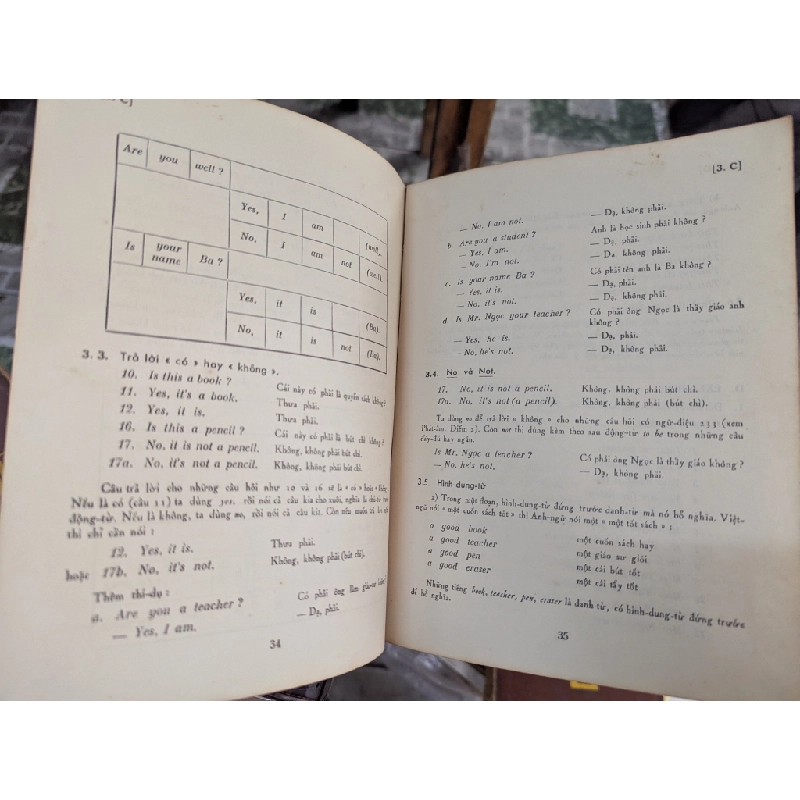 . C]
Are you well ?
Yes, I am (well).
No, I am not (well).
Is your name Ba ?
Yes, it is (Ba).
No, it is not (Ba).
3. 3. Trả lời « có » hay « không ».
10. Is this a book ? Cái này có phải là quyển sách không ?
11. Yes, it's a book. Thưa phải.
12. Yes, it is. Thưa phải.
16. Is this a pencil ? Cái này có phải là bút chì không ?
17. No, it is not a pencil. Không, không phải bút chì.
17a. No, it's not a pencil. Không, không phải bút chì.
Câu trả lời cho những câu hỏi như 10 và 16 sẽ là « có » hoặc « không »
Nếu là có (câu 11) ta dùng yes, rồi nói cả câu kia cho xuôi, nghĩa là chủ-từ
động-từ. Nếu là không, ta dùng no, rồi nói cả câu kia. Còn nếu muốn
thì chỉ cần nói :
12. Yes, it is. Thưa phải.
hoặc 17b. No, it's not. Không, không phải (bút chì).
Thêm thí-dụ :
a. Are you a teacher ? Có phải ông làm giáo-sư không ?
— Yes, I am. — Dạ, phải.
34
[3. C]
— No, I am not. — Dạ, không phải.
b. Are you a student ? Anh là học sinh phải không ?
— Yes, I am. — Dạ, phải.
— No, I'm not. — Dạ, không phải.
c. Is your name Ba ? Có phải tên anh là Ba không ?
— Yes, it is. — Dạ, phải.
— No, it's not. — Dạ, không phải.
d Is Mr. Ngọc your teacher ? Có phải ông Ngọc là thầy giáo anh
không ?
— Yes, he is. — Dạ, phải.
— No, he's not. — Dạ, không phải.
3.4. No và Not.
17. No, it is not a pencil. Không, không phải bút chì.
17a. No, it's not (a pencil). Không, không phải (bút chì).
Ta dùng no để trả lời « không » cho những câu hỏi có ngữ-điệu 233 (xem
Phát-âm, Điều 2). Còn not thì dùng kèm theo sau động-từ to be trong những câu
đầy-đủ hay ngắn.
Is Mr. Ngọc a teacher ? Có phải ông Ngọc là thầy giáo không ?
— No, he's not. — Dạ, không phải.
3.5. Hình dung-từ
a) Trong một đoạn, hình-dung-từ đứng trước danh-từ mà nó bổ nghĩa. Việt-
ngữ nói « một cuốn sách tốt » thì Anh-ngữ nói một « một tốt sách » :
a good book một cuốn sách hay
a good teacher một giáo sư giỏi
a good pen một cái bút tốt
a good eraser một cái tẩy tốt
Những tiếng book, teacher, pen, eraser là danh từ, có hình-dung-từ đứng trước
để bổ nghĩa.
35